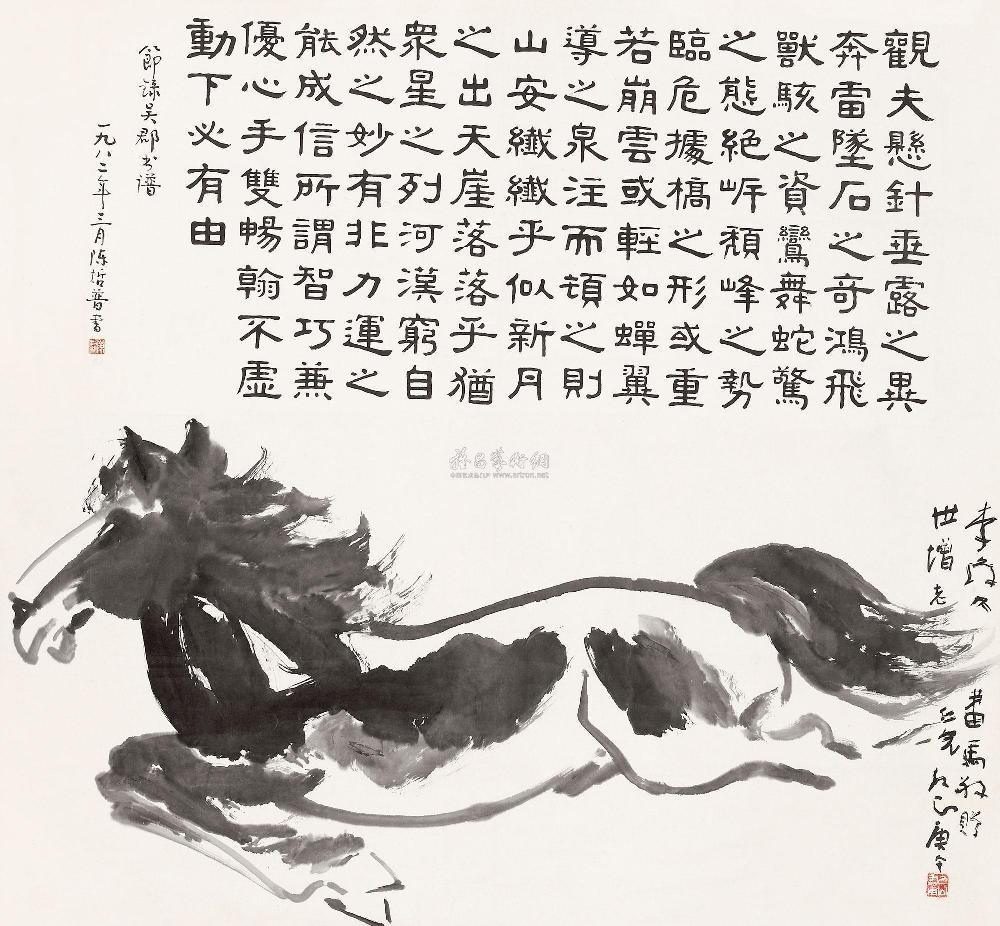 觀夫懸針垂露之異
奔雷墜石之奇鴻飛
獸駭之資鸞舞蛇驚
之態絕岸頹峰之勢
臨危據槁之形或重
若崩雲或輕如蟬翼
導之泉注而頓之則
山安纖纖乎似新月
之出天崖落落乎猶
眾星之列河漢窮自
然之妙有非力運之
能成信所謂智巧兼
優心手雙暢翰不虛
動下必有由
節録吴郡书譜
一九八二年三月陈哲普書
世增老
畫馬敬贈
庚午
www.artron.net